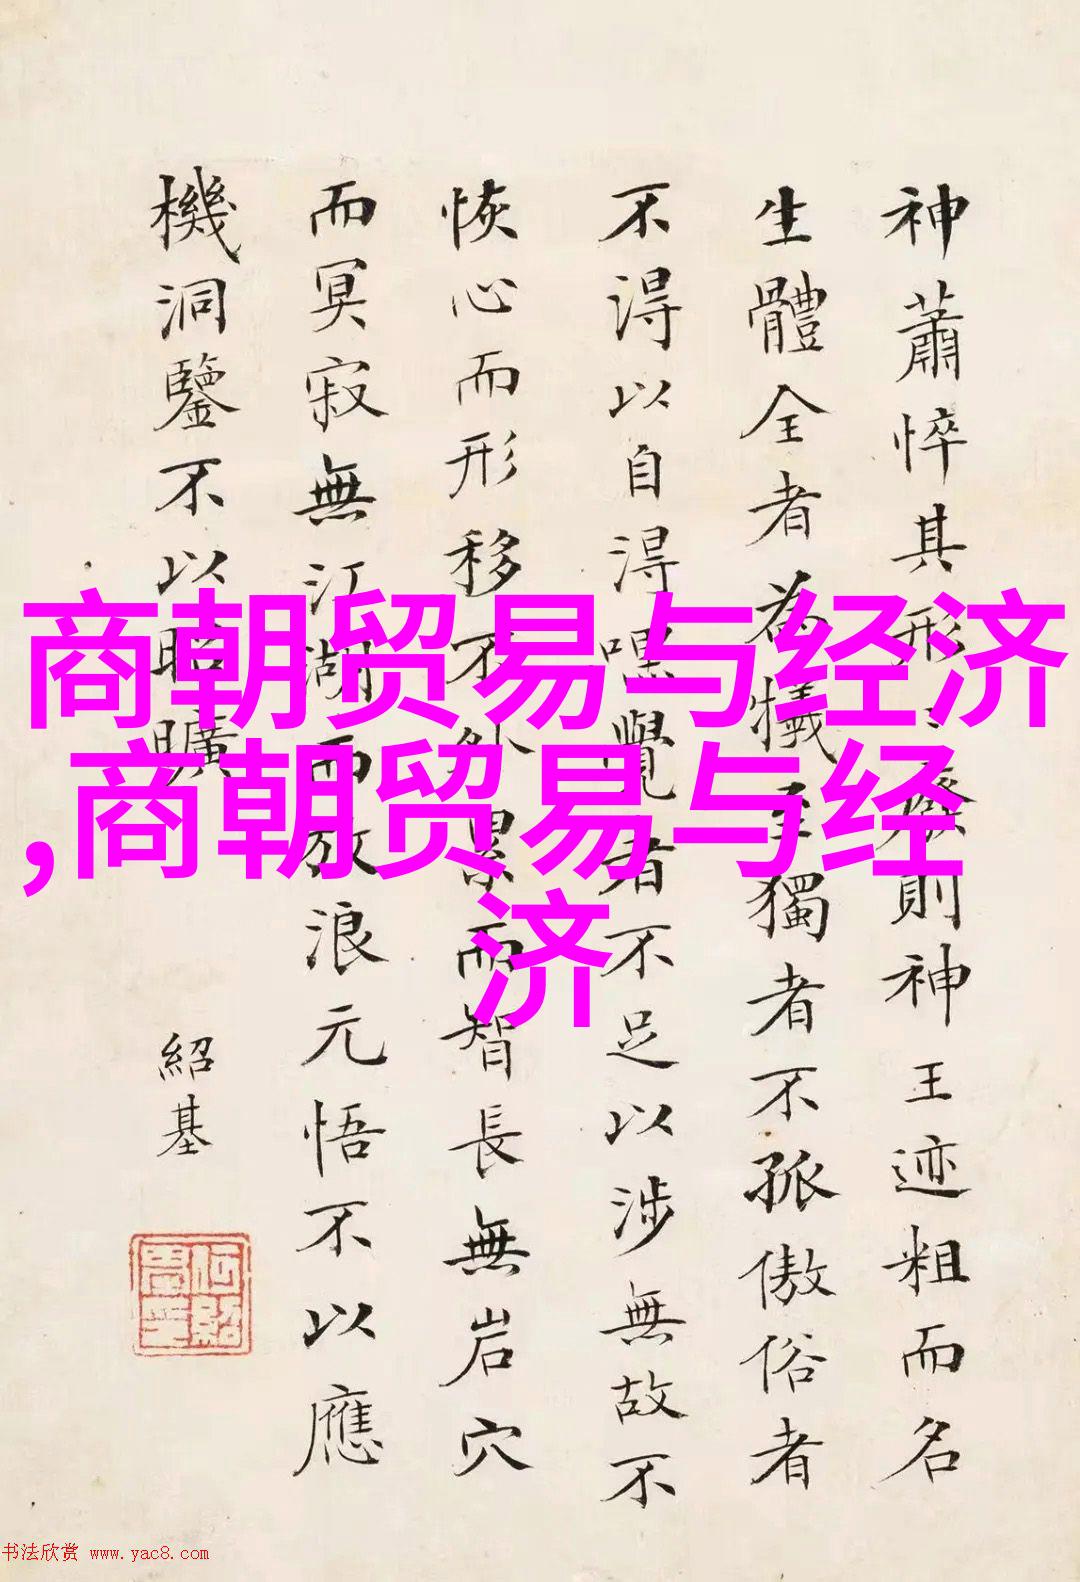 商朝贸易与经济
,商朝贸易与经
济
神蕭悴其形
廢則神王迹粗而名
生體全者為犧
獨者不孤傲俗者
不得以自得嘿覺者不足以涉無故不
恢心而形移不外累而智長無岩穴
而冥寂無江湖而放浪元悟不以應
機洞鑒不以昭曠
紹基
书法欣赏 www.yac8.com